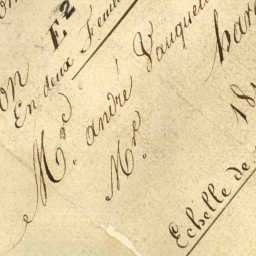 E2
En deux Feuil
Mr. andré Vauquel
Mre
18
Echelle de